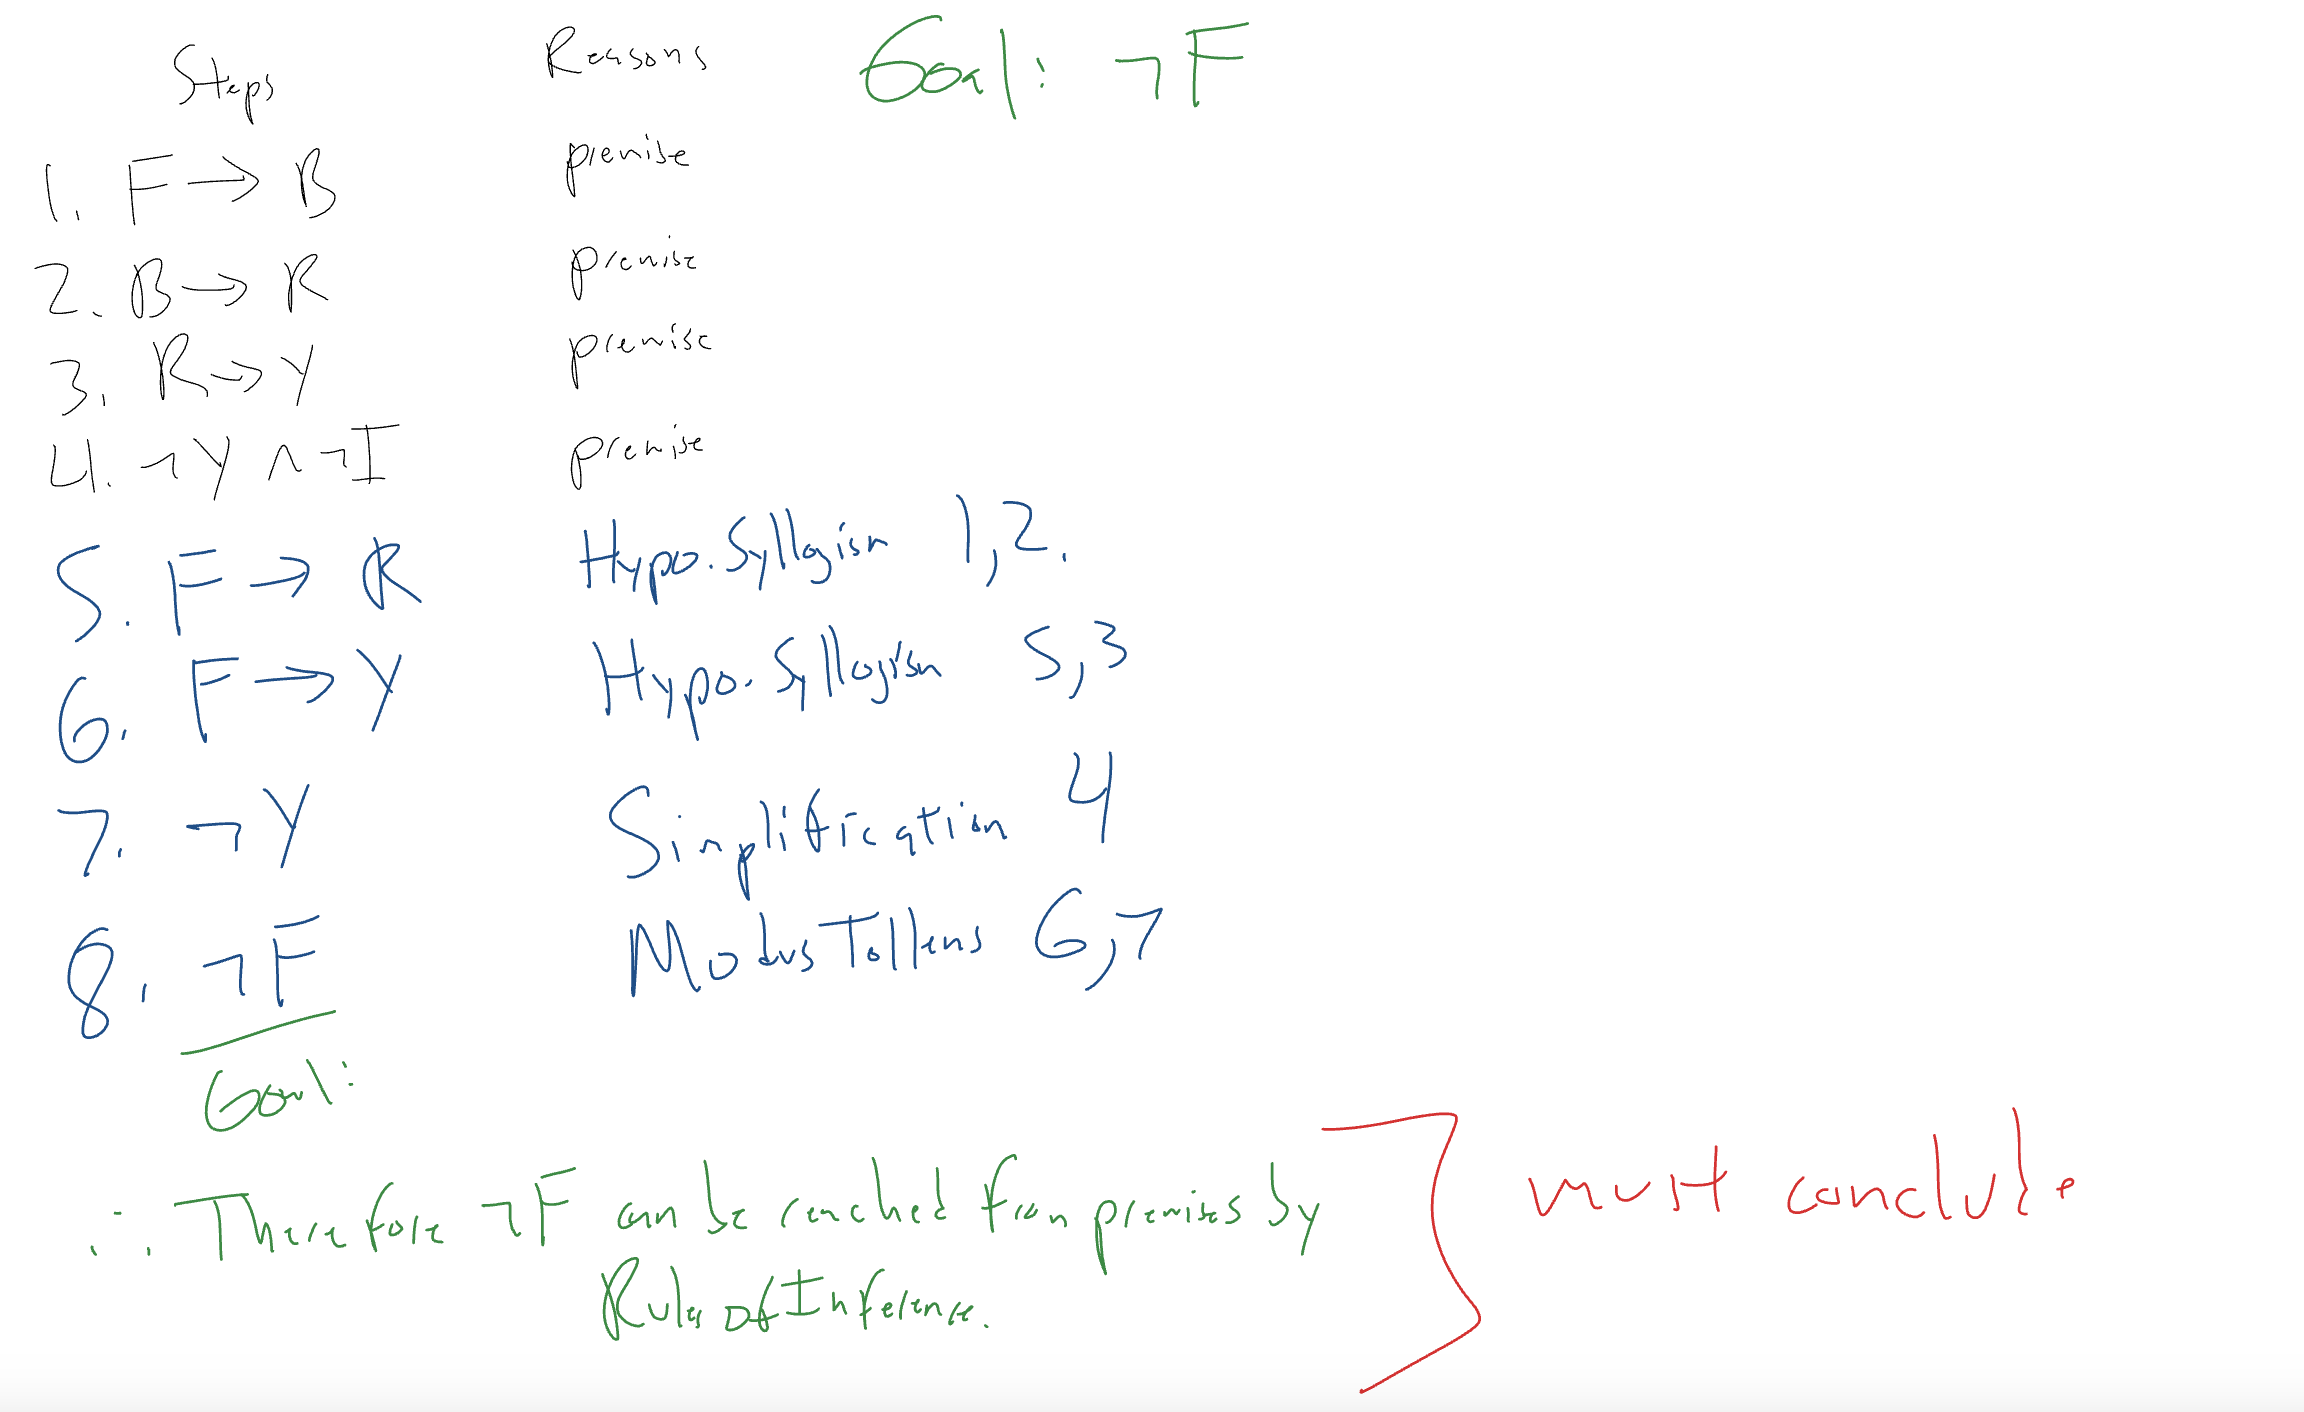 Steps Reasons Goal: ¬F
1. F → B premise
2. B → R premise
3. R → Y premise
4. ¬Y ∧ ¬I premise
5. F → R Hypo. Syllogism 1,2.
6. F → Y Hypo. Syllogism 5,3
7. ¬Y Simplification 4
8. ¬F Modus Tollens 6,7
Goal:
∴ Therefore ¬F can be reached from premises by
Rules of Inference.
must conclude